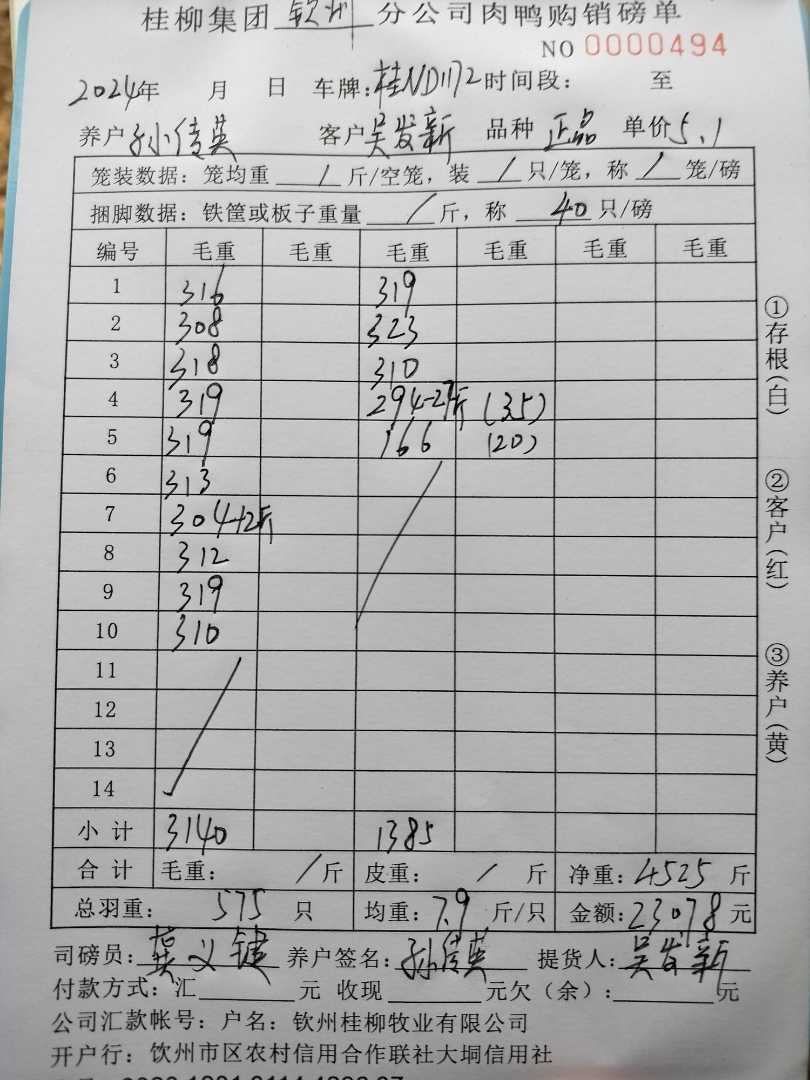 桂柳集团 钦州 分公司肉鸭购销磅单
NO 0000494
2024年 月 日 车牌:桂ND1172 时间段: 至
养户 孙倩英 客户 吴发新 品种 正品 单价 5.1
笼装数据: 笼均重 / 斤/空笼, 装 / 只/笼, 称 / 笼/磅
捆脚数据: 铁筐或板子重量 / 斤, 称 40 只/磅
编号 毛重 毛重 毛重 毛重 毛重 毛重
1 316 319
2 308 323
3 318 310
4 319 294-27斤 (35)
5 319 166 (20)
6 313
7 304+2斤
8 312
9 319
10 310
11
12
13
14
小计 3140 1385
合计 毛重: / 斤 皮重: / 斤 净重: 4525 斤
总羽重: 575 只 均重: 7.9 斤/只 金额: 23078 元
司磅员: 龚义键 养户签名: 孙倩英 提货人: 吴发新
付款方式: 汇 元 收现 元欠(余): 元
公司汇款帐号: 户名: 钦州桂柳牧业有限公司
开户行: 饮州市区农村信用合作联社大垌信用社
①存根(白)
②客户(红)
③养户(黄)